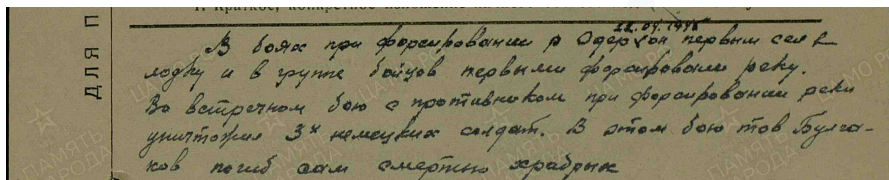 1. Краткое, конкретное изложение
22.04.1945
В боях при форсировании р Одер он первым сел в
лодку и в группе бойцов первыми форсировали реку.
Во встречном бою с противником при форсировании реки
уничтожил 3х немецких солдат. В этом бою тов Булга-
ков погиб сам смертью храбрых
ДЛЯ П